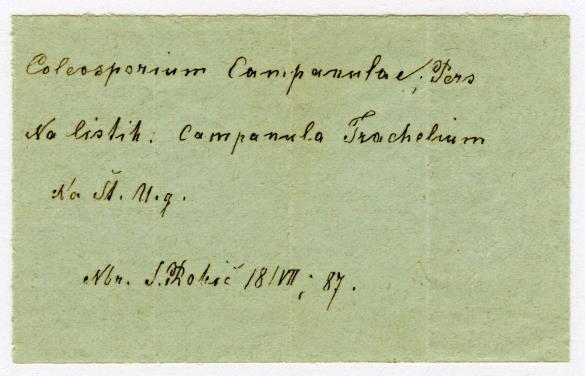 Coleosporium Campanulae, Pers
Na listih: Campanula Trachelium
Na Št. U.g.
Nbr. S. Robič 18/VII; 87.